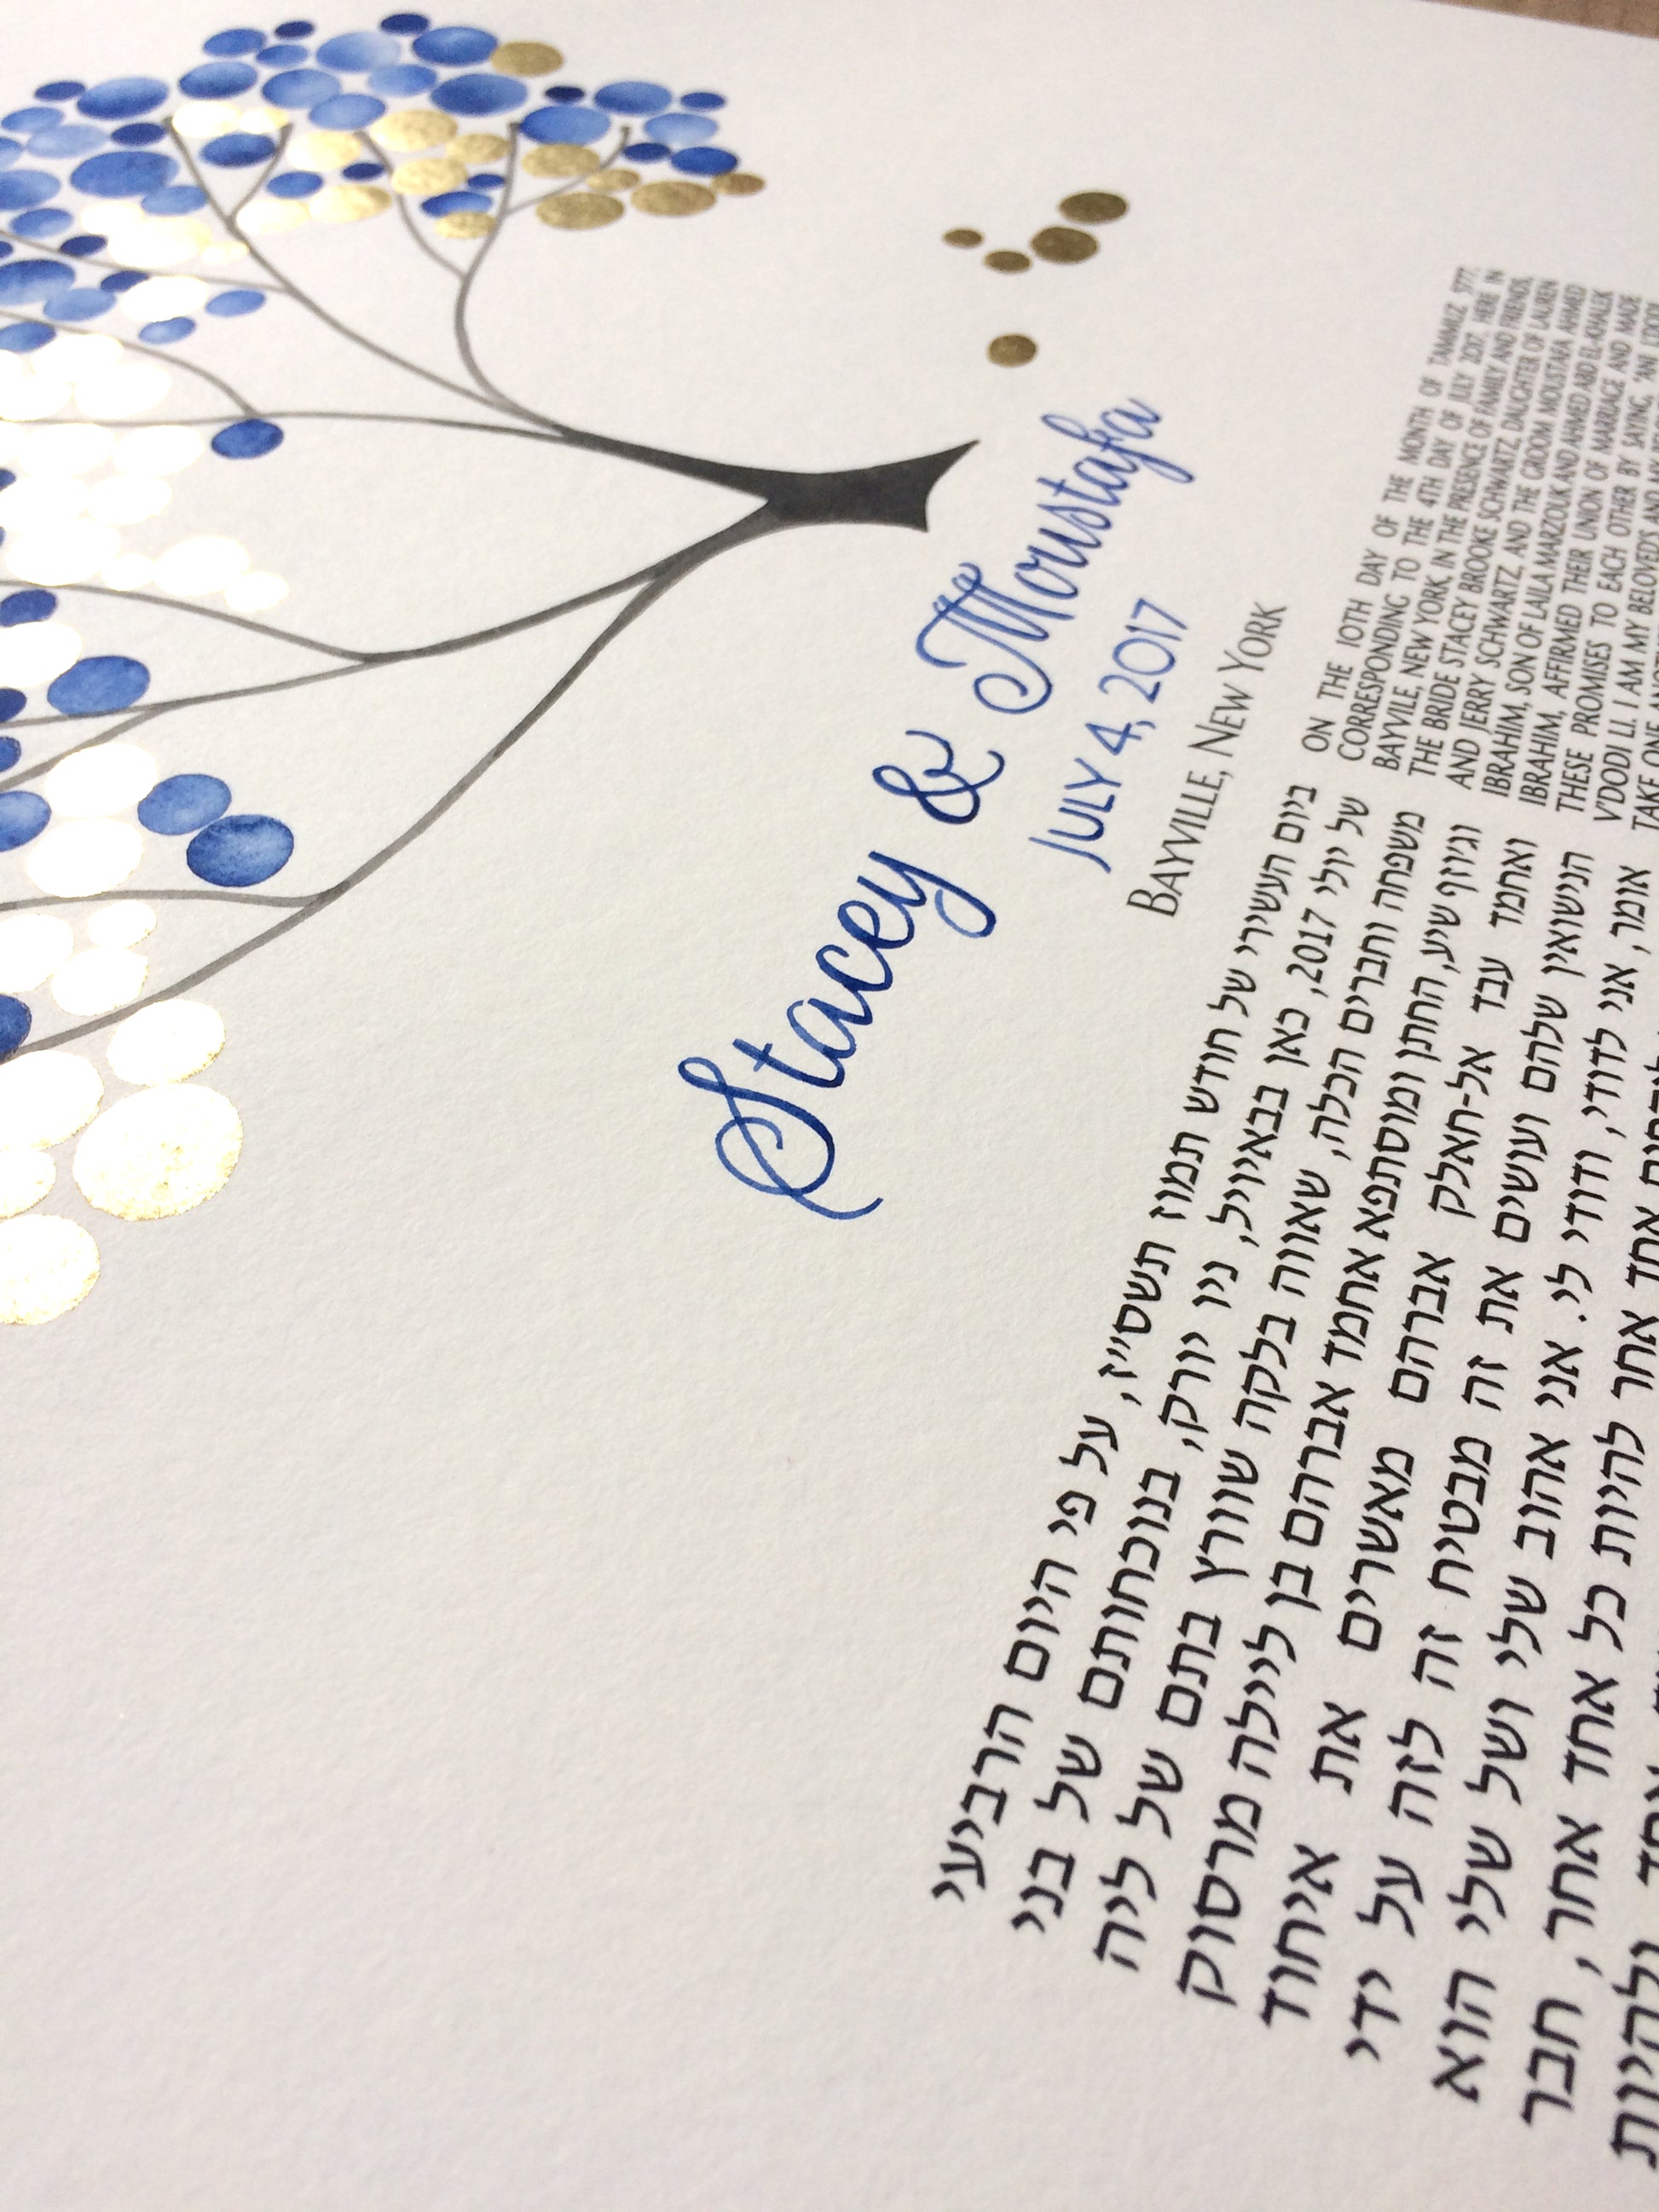 Stacey & Moustafa
JULY 4, 2017
BAYVILLE, NEW YORK
ביום העשירי של חודש תמוז תשס״ז, על פי היום הרביעי
של יולי 2017, כאן בבאיוויל, ניו יורק, בנוכחותם של בני
משפחה וחברים הכלה, שאווה בלקה שוורץ בתם של ליה
וגיוזף שיע, החתן ומוסתפא אחמד אברהם בן ליילה מרסוק
ואחמד עבד אל-חאלק אברהם מאשרים את איחוד
הנישואין שלהם ועושים את זה מבטיח זה לזה על ידי
אומר, אני לדודי, ודודי לי. אני אהוב שלי ושל שלי הוא
אחד אחר להיות כל אחד אחר, חבר
ולהיות
ON THE 10TH DAY OF THE MONTH OF TAMMUZ 5777,
CORRESPONDING TO THE 4TH DAY OF JULY 2017, HERE IN
BAYVILE, NEW YORK, IN THE PRESENCE OF FAMILY AND FRIENDS,
THE BRIDE STACEY BROOKE SCHWARTZ, DAUGHTER OF LAUREN
AND JERRY SCHWARTZ, AND THE GROOM MOUSTAFA AHMED
IBRAHIM, SON OF LAILA MARZOUK AND AHMED ABD EL-KHALEK
IBRAHIM, AFFIRMED THEIR UNION OF MARRIAGE AND MADE
THESE PROMISES TO EACH OTHER BY SAYING, "ANI L'DODI,
V'DODI LI. I AM MY BELOVED'S AND MY
TAKE ONE